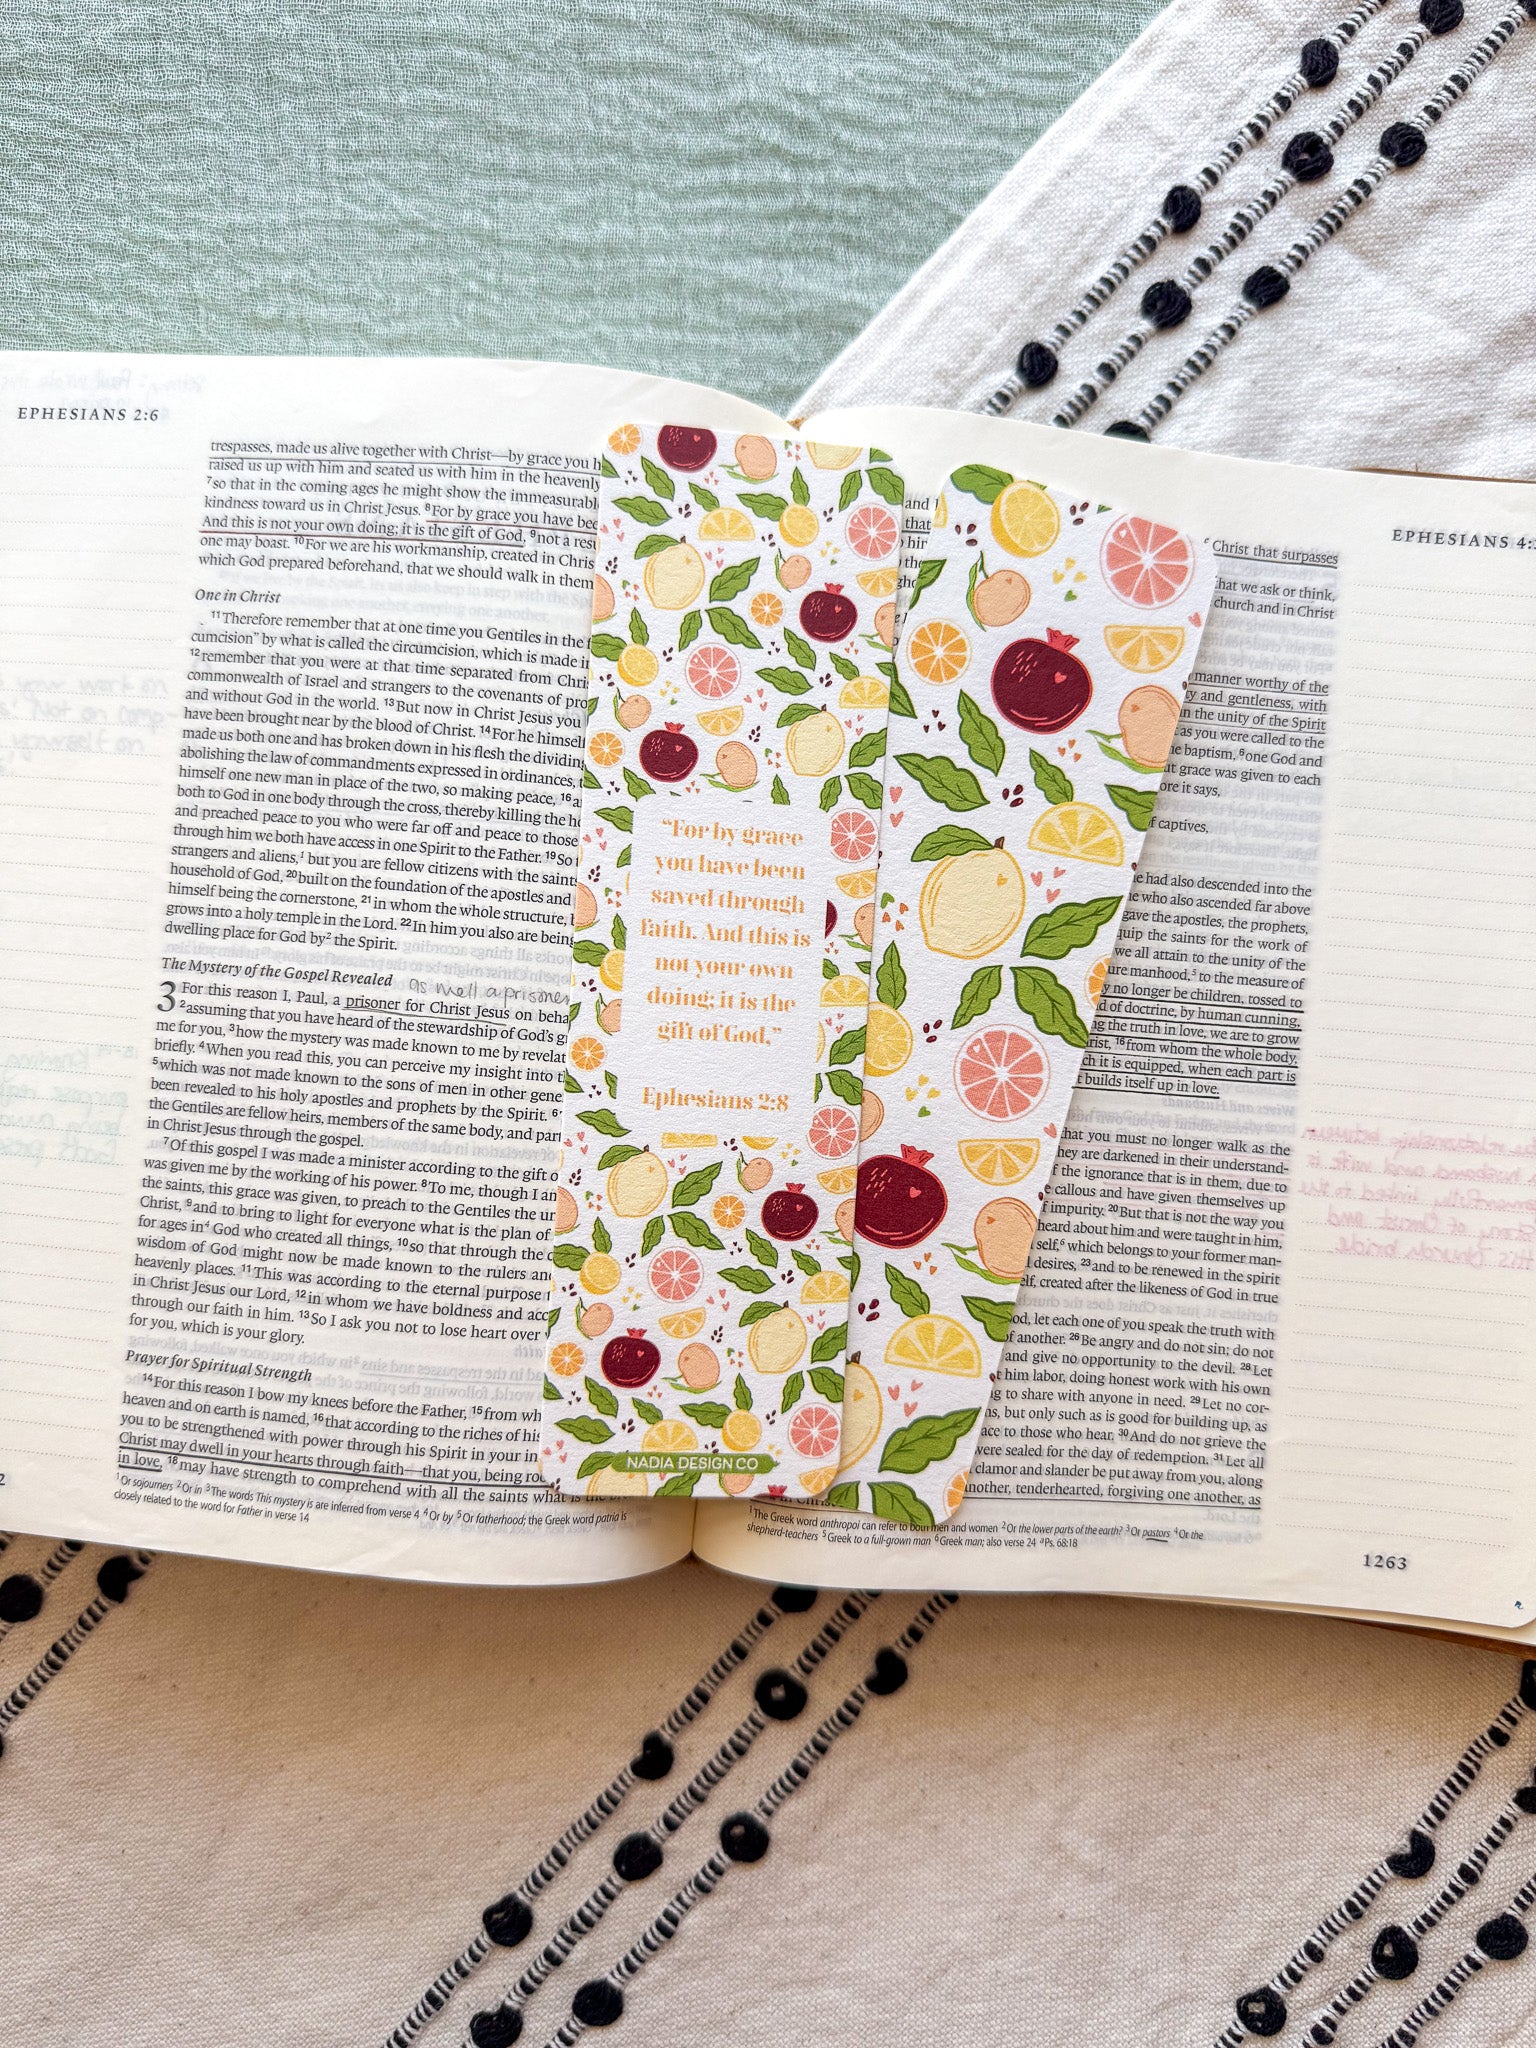 EPHESIANS 2:6
trespasses, made us alive together with Christ—by grace you h
raised us up with him and seated us with him in the heavenly
7so that in the coming ages he might show the immeasurabl
kindness toward us in Christ Jesus. 8For by grace you have bee
And this is not your own doing; it is the gift of God, 9not a res
one may boast. 10For we are his workmanship, created in Chris
which God prepared beforehand, that we should walk in them
One in Christ
11Therefore remember that at one time you Gentiles in the f
cumcision” by what is called the circumcision, which is made in
12remember that you were at that time separated from Chris
commonwealth of Israel and strangers to the covenants of pro
and without God in the world. 13But now in Christ Jesus you
have been brought near by the blood of Christ. 14For he himself
made us both one and has broken down in his flesh the dividin
abolishing the law of commandments expressed in ordinances,
himself one new man in place of the two, so making peace, 16a
both to God in one body through the cross, thereby killing the ho
and preached peace to you who were far off and peace to those
through him we both have access in one Spirit to the Father. 19So
strangers and aliens,1 but you are fellow citizens with the saints
household of God, 20built on the foundation of the apostles and
himself being the cornerstone, 21in whom the whole structure,
grows into a holy temple in the Lord. 22In him you also are being
dwelling place for God by2 the Spirit.
The Mystery of the Gospel Revealed as well a prisoner
3 For this reason I, Paul, a prisoner for Christ Jesus on beha
2assuming that you have heard of the stewardship of God's g
me for you, 3how the mystery was made known to me by revelat
briefly. 4When you read this, you can perceive my insight into t
5which was not made known to the sons of men in other gene
been revealed to his holy apostles and prophets by the Spirit. 6
the Gentiles are fellow heirs, members of the same body, and part
in Christ Jesus through the gospel.
7Of this gospel I was made a minister according to the gift o
was given me by the working of his power. 8To me, though I am
the saints, this grace was given, to preach to the Gentiles the un
Christ, 9and to bring to light for everyone what is the plan of
for ages in4 God who created all things, 10so that through the c
wisdom of God might now be made known to the rulers and
heavenly places. 11This was according to the eternal purpose
in Christ Jesus our Lord, 12in whom we have boldness and acc
through our faith in him. 13So I ask you not to lose heart over
for you, which is your glory.
Prayer for Spiritual Strength
14For this reason I bow my knees before the Father, 15from wh
heaven and on earth is named, 16that according to the riches of his
you to be strengthened with power through his Spirit in your in
Christ may dwell in your hearts through faith—that you, being roo
in love, 18may have strength to comprehend with all the saints what is the
1Or sojourners 2Or in 3The words This mystery is inferred from verse 4 4Or by 5Or fatherhood; the Greek word patria is
closely related to the word for Father in verse 14
“For by grace
you have been
saved through
faith. And this is
not your own
doing; it is the
gift of God,”
Ephesians 2:8
NADIA DESIGN CO
EPHESIANS 4:
Christ that surpasses
that we ask or think,
church and in Christ
manner worthy of the
y and gentleness, with
n the unity of the Spirit
as you were called to the
e baptism, 6one God and
ut grace was given to each
ore it says,
f captives,
he had also descended into the
e who also ascended far above
gave the apostles, the prophets,
quip the saints for the work of
we all attain to the unity of the
ure manhood,5 to the measure of
y no longer be children, tossed to
d of doctrine, by human cunning,
ng the truth in love, we are to grow
rist, 16from whom the whole body,
h it is equipped, when each part is
t builds itself up in love.
that you must no longer walk as the
hey are darkened in their understand-
f the ignorance that is in them, due to
e callous and have given themselves up
f impurity. 20But that is not the way you
heard about him and were taught in him,
self,6 which belongs to your former man-
desires, 23and to be renewed in the spirit
elf, created after the likeness of God in true
ood, let each one of you speak the truth with
of another. 26Be angry and do not sin; do not
and give no opportunity to the devil. 28Let
t him labor, doing honest work with his own
ng to share with anyone in need. 29Let no cor-
s, but only such as is good for building up, as
ace to those who hear. 30And do not grieve the
were sealed for the day of redemption. 31Let all
clamor and slander be put away from you, along
nother, tenderhearted, forgiving one another, as
1The Greek word anthropoi can refer to both men and women 2Or the lower parts of the earth? 3Or pastors 4Or the
shepherd-teachers 5Greek to a full-grown man 6Greek man; also verse 24 aPs. 68:18
1263